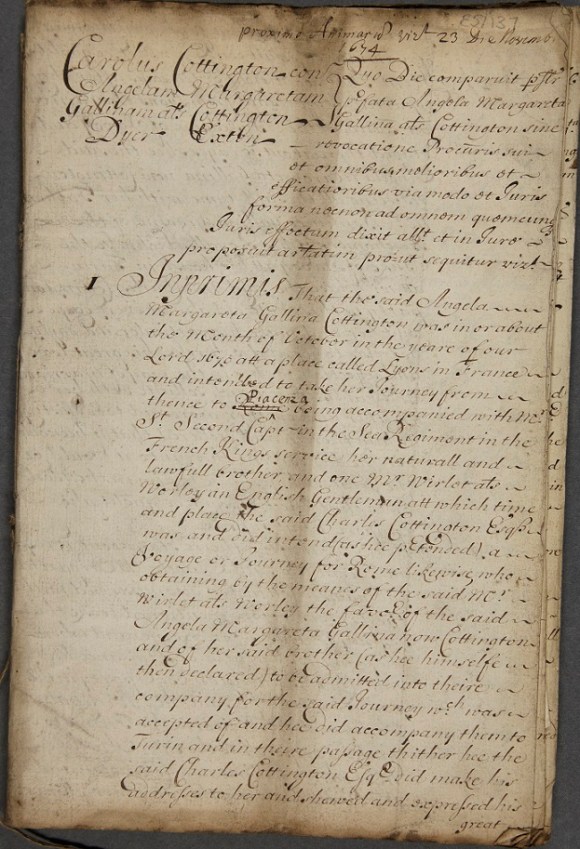 E5/137
proximè Animarũ vizt 23 Die Novemb
1674
Carolus Cottington con
Angelam Margaretam
Gallinam als Cottington
Dyer Exten
Quo Die comparuit
pfata Angela Margareta
Gallina als Cottington sine
revocatione Procuris sui
et omnibus melioribus et
efficatioribus via modo et Juris
forma necnon ad omnem quemcunq
Juris effectum dixit allt et in Juro
proposuit artatim prout sequitur vizt
1 Inprimis That the said Angela
Margareta Gallina Cottington was in or about
the Month of October in the yeare of our
Lord att a place called Lyons in France
and intended to take her Journey from
Piacenza
thence to Rome being accompanied with Mr.
St. Second Capt in the Sea Regiment in the
French Kings service her naturall and
lawfull brother and one Mr Wirlet als
Worley an English Gentleman att which time
and place the said Charles Cottington Esqr
was and did intend (as hee pretended) a
Voyage or Journey for Rome likewise who
obtaining by the meanes of the said Mr.
Wirlet als Worley the favor of the said
Angela Margareta Gallina now Cottington
and of her said brother (as hee himselfe
then declared) to be admitted into theire
company for the said Journey wch was
accepted of and hee did accompany them to
Turin and in theire passage thither hee the
said Charles Cottington Esqr did make his
addresses to her and shewed and expressed his
great